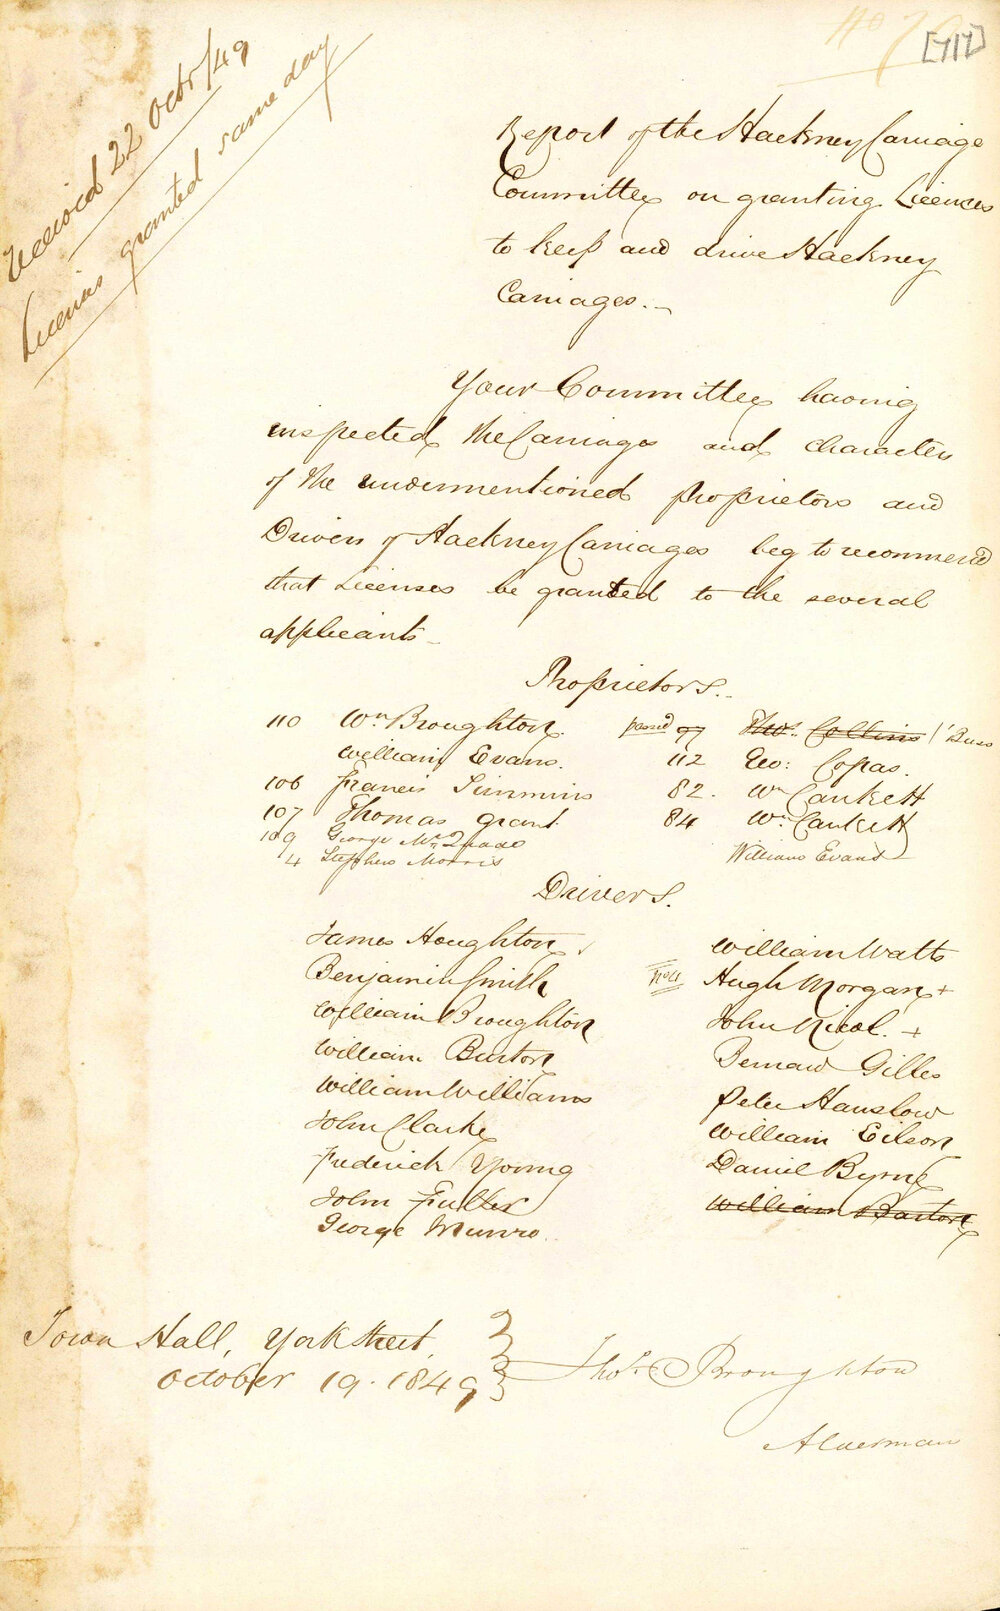 No 76
[717]
Received 22 Octbr/49
Licenses granted same day
Report of the Hackney Carriage
Committee on granting Licenses
to keep and drive Hackney
Carriages.
Your Committee having
inspected the Carriages and character
of the undermentioned proprietors and
Drivers of Hackney Carriages beg to recommend
that Licenses be granted to the several
applicants
Proprietors.
110 Wm Broughton. passed 97 Thos. Collins
William Evans. 112 Geo: Copas.
106 Francis Simmins 82. Wm Cankett
107 Thomas Grant 84 Wm Cankett
109 George McQuade William Evans
4 Stephen Morris
Drivers.
James Houghton William Watts
Benjamin Smith Hugh Morgan +
William Broughton John Nicol. +
William Burton Bernard Gilles
William Williams Peter Hanslow
John Clarke William Eilson
Frederick Young Daniel Byrne
John Fuller William Barton
George Munro
Town Hall, York Street,
October 19. 1849
Thos. Broughton
Alderman